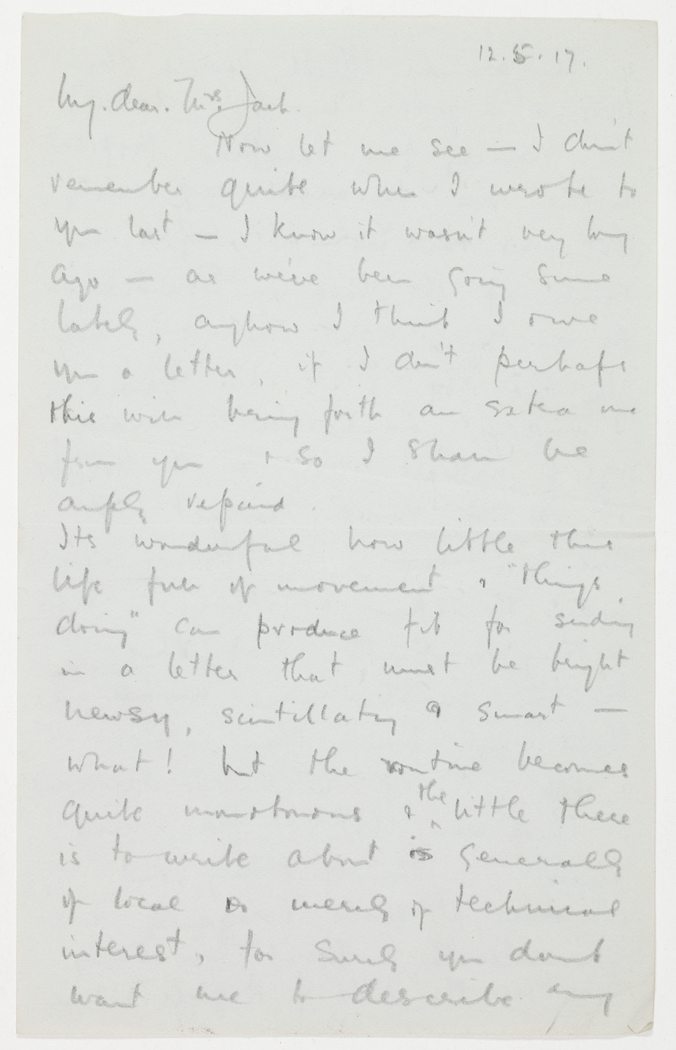 12.5.17.
My. dear. Mrs. Jack.
Now let me see — I don't
remember quite when I wrote to
you last — I know it wasn't very long
ago — as we've been going some
lately, anyhow I think I owe
you a letter, if I don't perhaps
this will bring forth an extra one
from you & so I shall be
amply repaid.
Its wonderful how little this
life full of movement & "things
doing" can produce fit for sending
in a letter that must be bright
newsy, scintillating & smart —
what! but the routine becomes
quite monotonous & the little there
is to write about is generally
of local or merely of technical
interest, for surely you don't
want me to describe my